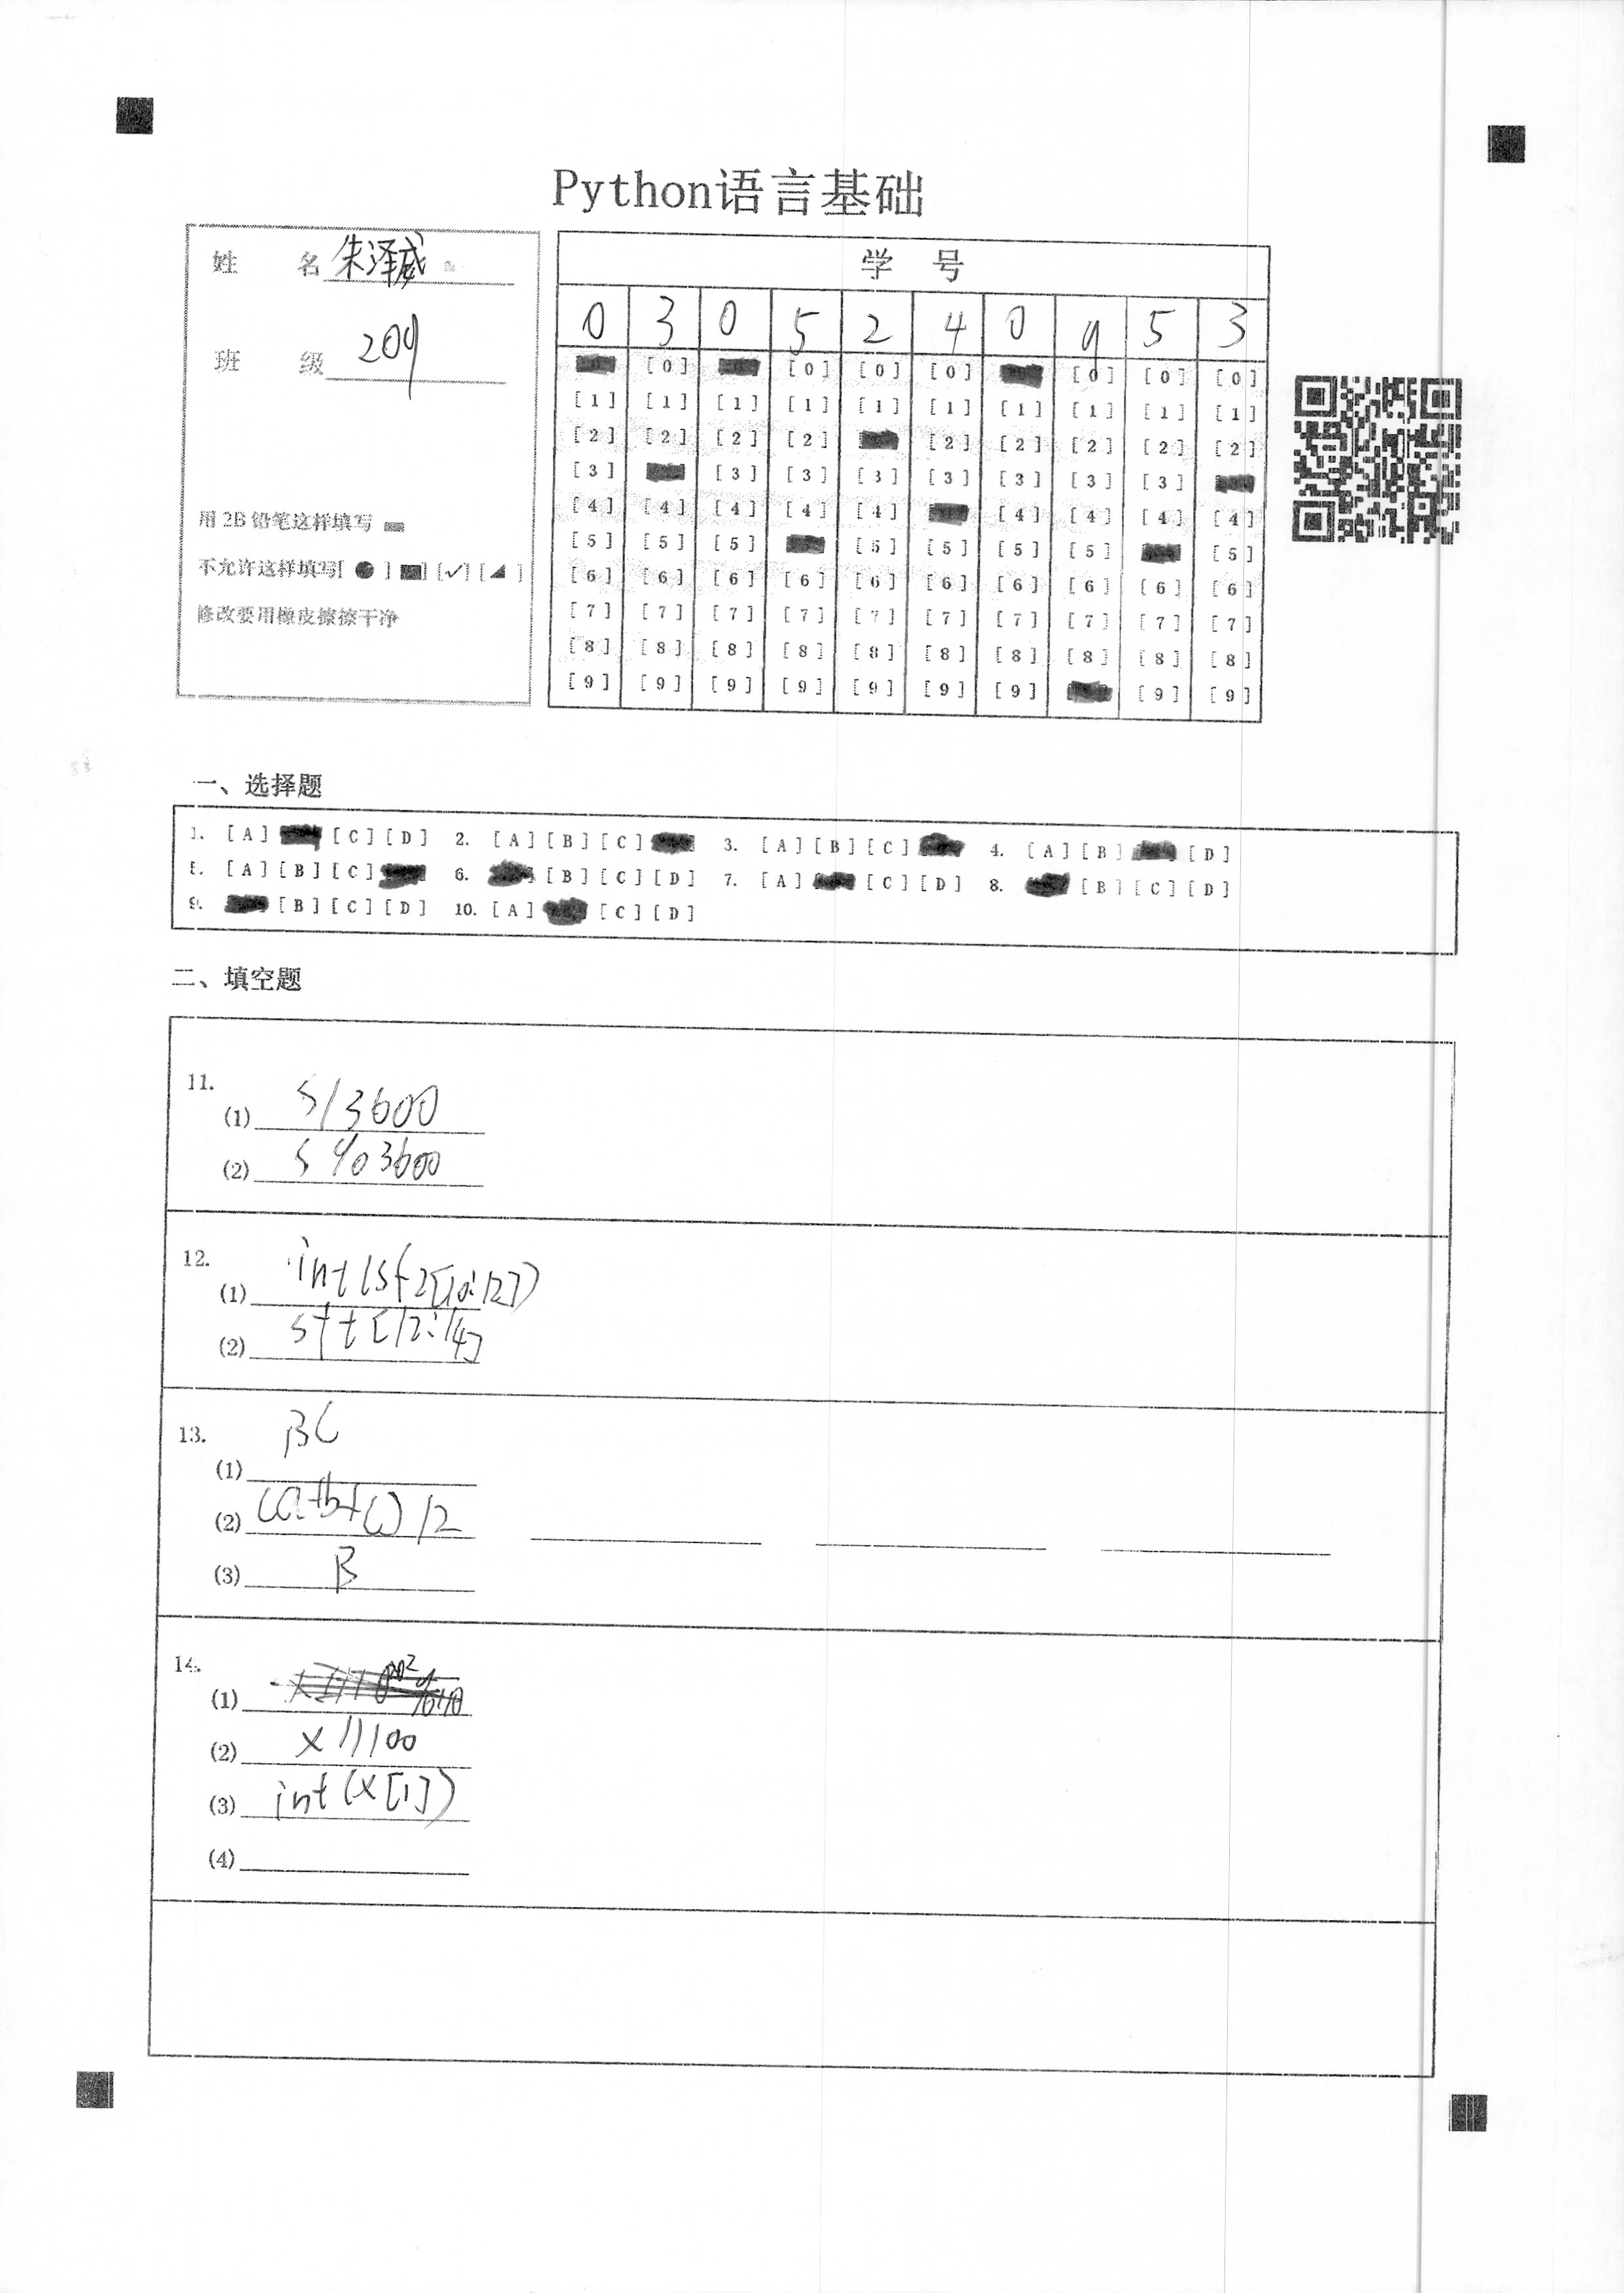 Python语言基础
姓 名 朱泽威
班 级 209
用 2B 铅笔这样填写
不允许这样填写[ ● ] [✓] [ ◢ ]
修改要用橡皮擦擦干净
学 号
0 3 0 5 2 4 0 9 5 3
[0] [0] [0] [0] [0] [0]
[1] [1] [1] [1] [1] [1] [1] [1] [1] [1]
[2] [2] [2] [2] [2] [2] [2] [2] [2]
[3] [3] [3] [3] [3] [3] [3] [3]
[4] [4] [4] [4] [4] [4] [4] [4] [4]
[5] [5] [5] [5] [5] [5] [5] [5]
[6] [6] [6] [6] [6] [6] [6] [6] [6] [6]
[7] [7] [7] [7] [7] [7] [7] [7] [7] [7]
[8] [8] [8] [8] [8] [8] [8] [8] [8] [8]
[9] [9] [9] [9] [9] [9] [9] [9] [9]
一、选择题
1. [A] [C] [D] 2. [A] [B] [C] 3. [A] [B] [C] 4. [A] [B] [D]
5. [A] [B] [C] 6. [B] [C] [D] 7. [A] [C] [D] 8. [B] [C] [D]
9. [B] [C] [D] 10. [A] [C] [D]
二、填空题
11.
(1) s/3600
(2) s%3600
12.
(1) int(str2[10:12])
(2) str[12:14]
13.
(1) BC
(2) (a+b+c)/2
(3) B
14.
(1)
(2) x//100
(3) int(x[1])
(4)